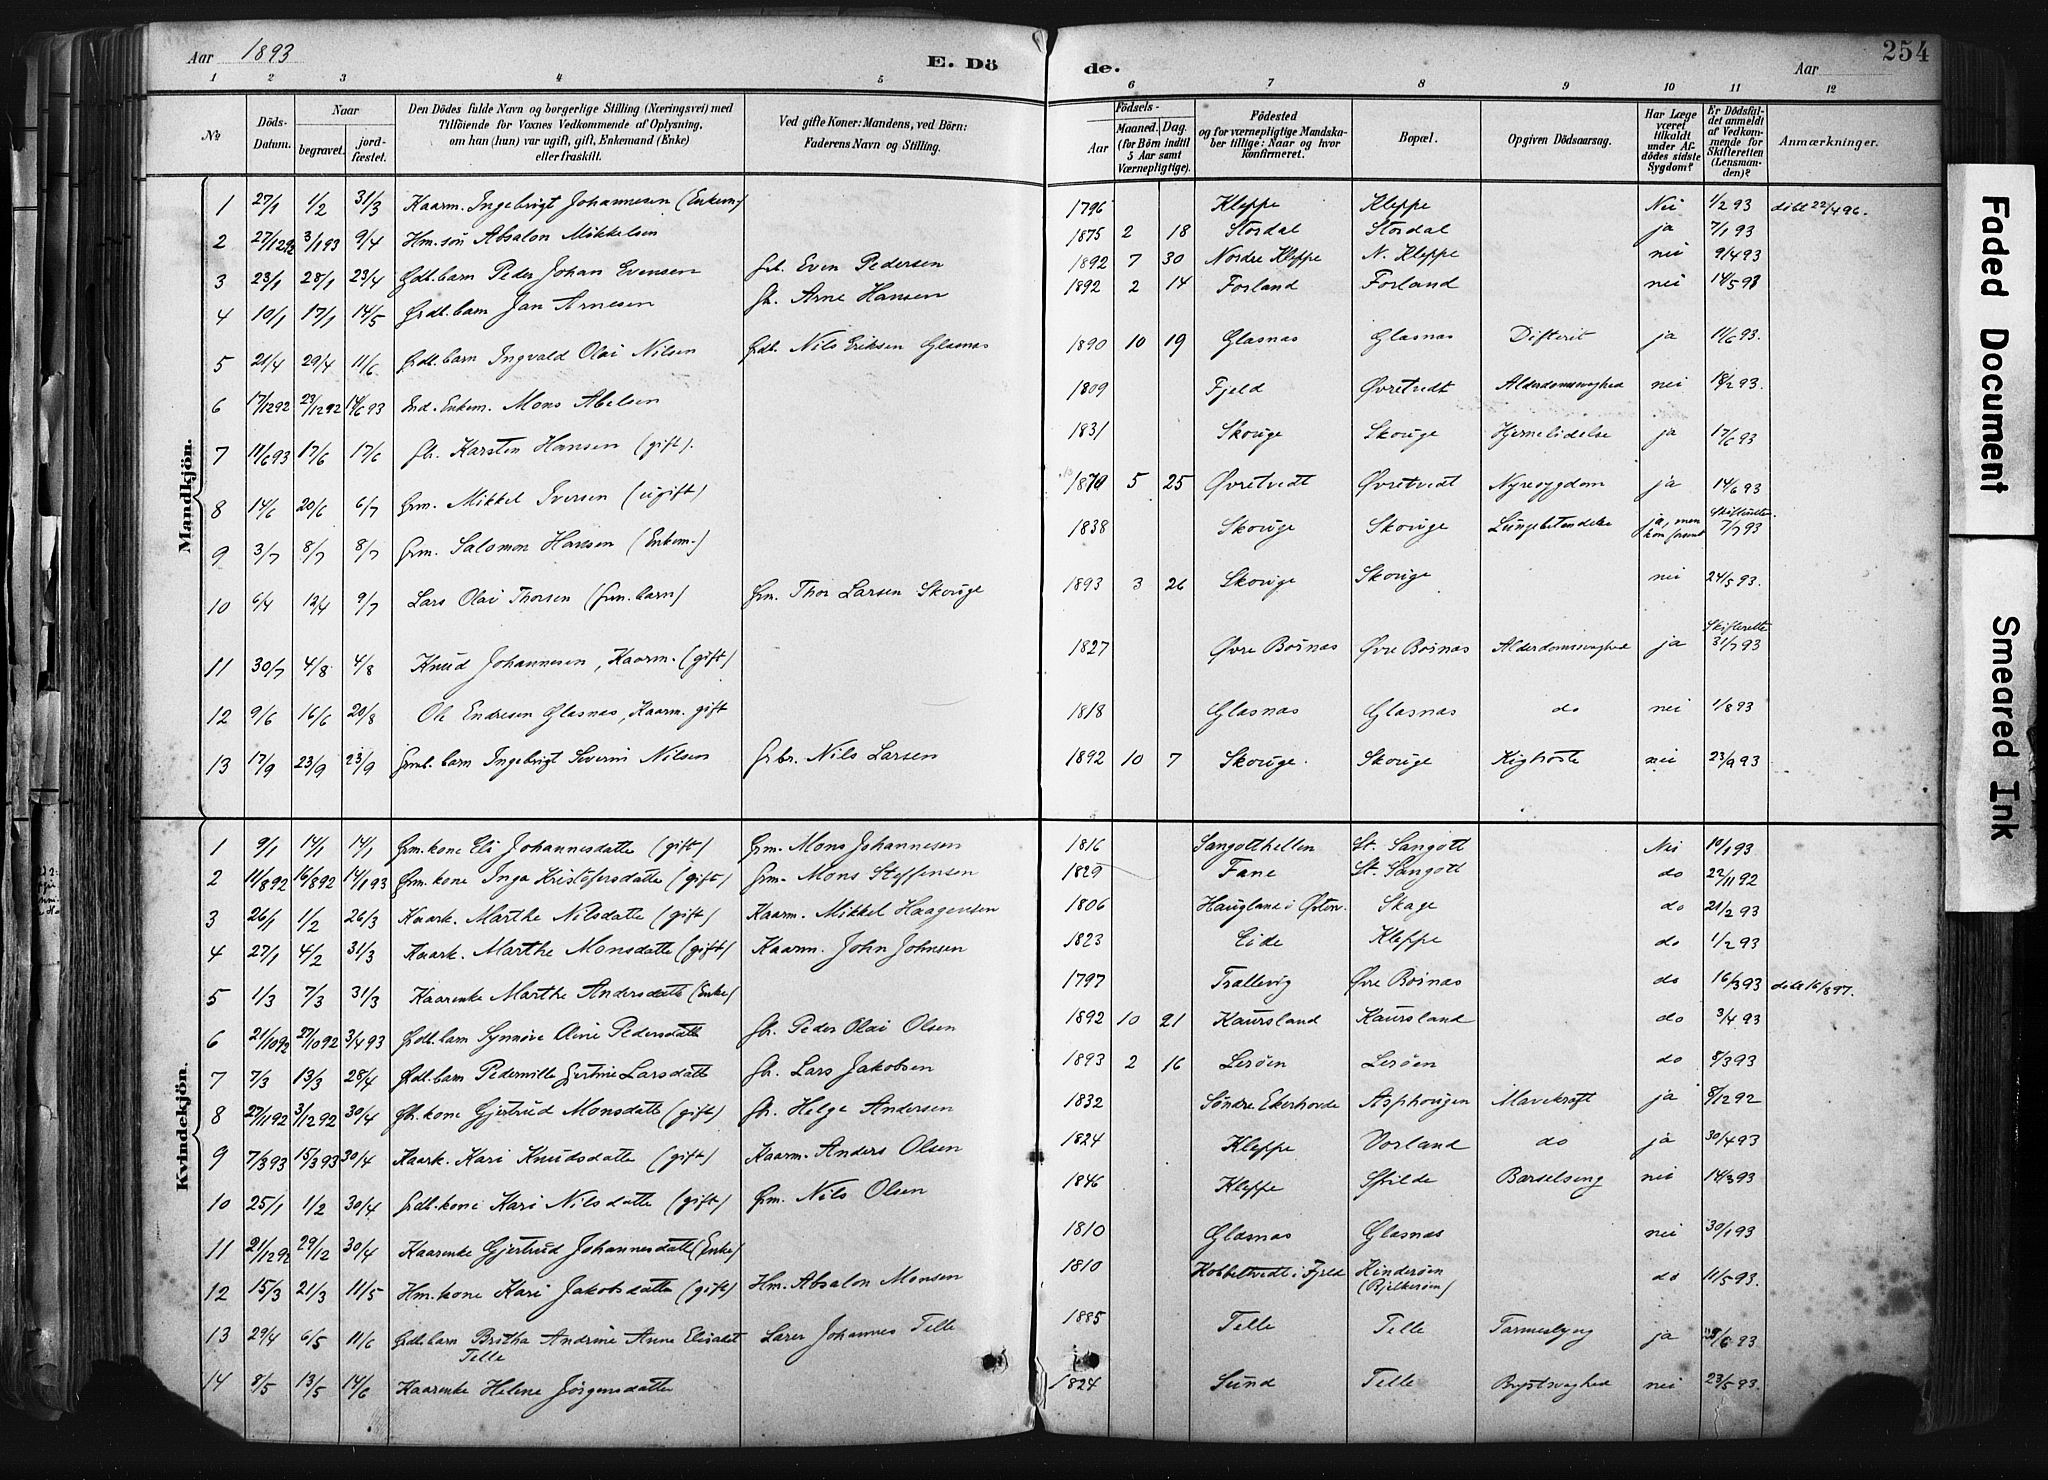 Aar 1893
E. Dö
de.
Aar
254
1 2 3 4 5 6 7 8 9 10 11 12
No
Döds-Datum.
Naar
begravet.
jord-fæstet.
Den Dödes fulde Navn og borgerlige Stilling (Næringsvei) med
Tilföiende for Voxnes Vedkommende af Oplysning,
om han (hun) var ugift, gift, Enkemand (Enke)
eller fraskilt.
Ved gifte Koner: Mandens, ved Börn:
Faderens Navn og Stilling.
Födsels-
Aar
Maaned. Dag.
(for Börn indtil
5 Aar samt
Værnepligtige).
Födested
og for værnepligtige Mandska-
ber tillige: Naar og hvor
konfirmeret.
Bopæl.
Opgiven Dödsaarsag.
Har Læge
været
tilkaldt
under Af-
dödes sidste
Sygdom?
Er Dödsfal-
det anmeldt
af Vedkom-
mende for
Skifteretten
(Lensman-
den)?
Anmærkninger.
Mandkjön.
1 27/1 1/2 31/3 Kaarm. Ingebrigt Johannesen (Enkem.) 1796 Kleppe Kleppe Nei 1/2 93 döbt 22/4 96.
2 27/12 92 3/1 93 9/4 Hm. sön Absalon Mikkelsen 1875 2 18 Stordal Stordal ja 7/1 93
3 23/1 28/1 23/4 Grdb. barn Peder Johan Evensen Grb. Even Pedersen 1892 7 30 Nordre Kleppe N. Kleppe nei 9/4 93
4 10/1 17/1 14/5 Grdb. barn Jan Arnesen Gb. Arne Hansen 1892 2 14 Forland Forland nei 14/5 93
5 21/4 29/4 11/6 Grdb. barn Ingvald Olai Nilsen Grdb. Nils Eriksen Glasnas 1890 10 19 Glasnas Glasnas Difterit ja 11/6 93.
6 17/12 92 23/12 92 14/6 93 Ind. Enkem. Mons Abelsen 1809 Fjeld Øvretvedt Alderdomssvaghed nei 18/2 93.
7 11/6 93 17/6 17/6 Gb. Karsten Hansen (gift). 1831 Skouge Skouge Hjernelidelse ja 17/6 93
8 14/6 20/6 6/7 Grm. Mikkel Iversen (ugift) 1870 5 25 Øvretvedt Øvretvedt Nyresygdom ja 14/6 93
9 3/7 8/7 8/7 Grm. Salomon Hansen (Enkem.) 1838 Skouge Skouge Lungebetændelse ja, men Skifteretten 7/7 93
10 6/4 12/4 9/7 Lars Olai Thorsen (Grm. barn) Grm. Thor Larsen Skouge 1893 3 26 Skouge Skouge nei 24/5 93.
11 30/7 4/8 4/8 Knud Johannesen, Kaarm. (gift) 1827 Øvre Böinas Øvre Böinas Alderdomssvaghed ja Skifterette 31/7 93
12 9/6 16/6 20/8 Ole Endresen Glasnas, Kaarm. gift 1818 Glasnas Glasnas do nei 1/8 93
13 17/9 23/9 23/9 Grmb. barn Ingebrigt Severin Nilsen Grbr. Nils Larsen 1892 10 7 Skouge. Skouge Kighoste nei 23/9 93
Kvindekjön.
1 9/1 14/1 14/1 Grm. kone Eli Johannesdatte (gift) Grm. Mons Johannesen 1816 Sangotthellen St. Sangolt Nei 10/1 93
2 11/8 92 16/8 92 14/1 93 Grm. kone Inga Kristofersdatte (gift) Grm. Mons Steffensen 1829 Fane St. Sangolt do 22/11 92
3 26/1 1/2 26/3 Kaark. Marthe Nilsdatte (gift) Kaarm. Mikkel Haagensen 1806 Hauglane i Østerv. Skage do 21/2 93
4 27/1 4/2 31/3 Kaark. Marthe Monsdatte (gift) Kaarm. John Johnsen 1823 Eide Kleppe do 1/2 93
5 1/3 7/3 31/3 Kaarenke Marthe Andersdatte (Enke) 1797 Trallevig Øvre Böinas do 16/3 93 döbt 16/8 97.
6 21/10 92 27/10 92 3/4 93 Grdb. barn Synnöve Oline Pedersdatte Gb. Peder Olai Olsen 1892 10 21 Kausland Kausland do 3/4 93
7 7/3 13/3 28/4 Grdb. barn Pedernille Gjertine Larsdatte Gb. Lars Jakobsen 1893 2 16 Leröen Leröen do 8/3 93
8 27/11 92 3/12 92 30/4 Gb. kone Gjertrud Monsdatte (gift) Gb. Helge Andersen 1832 Söndre Ekerhovde Asphougen Mavekræft ja 8/12 92
9 7/3 93 15/3 93 30/4 Kaark. Kari Knudsdatte (gift) Kaarm. Anders Olsen 1824 Kleppe Vorland do ja 30/4 93
10 25/1 1/2 30/4 Grdb. kone Kari Nilsdatte (gift) Grm. Nils Olsen 1846 Kleppe Spilde Barselseng nei 14/3 93
11 21/12 92 29/12 30/4 Kaarenke Gjertrud Johannesdatte (Enke) 1810 Glasnas Glasnas nei 30/1 93
12 15/3 21/3 11/5 Hm. kone Kari Jakobsdatte (gift) Hm. Absalon Monsen 1810 Kobbeltvedt i Fjeld Hinderöen (Bjelkeröen) do 11/5 93.
13 29/4 6/5 11/6 Grdb. barn Britha Andrine Anne Elisabet Telle Lærer Johannes Telle 1885 Telle Telle Tarmeslyng ja /6 93
14 8/5 13/5 14/6 Kaarenke Helene Jörgensdatte 1824 Sund Telle Brystsvaghed nei 23/5 93.
Faded Document
Smeared Ink